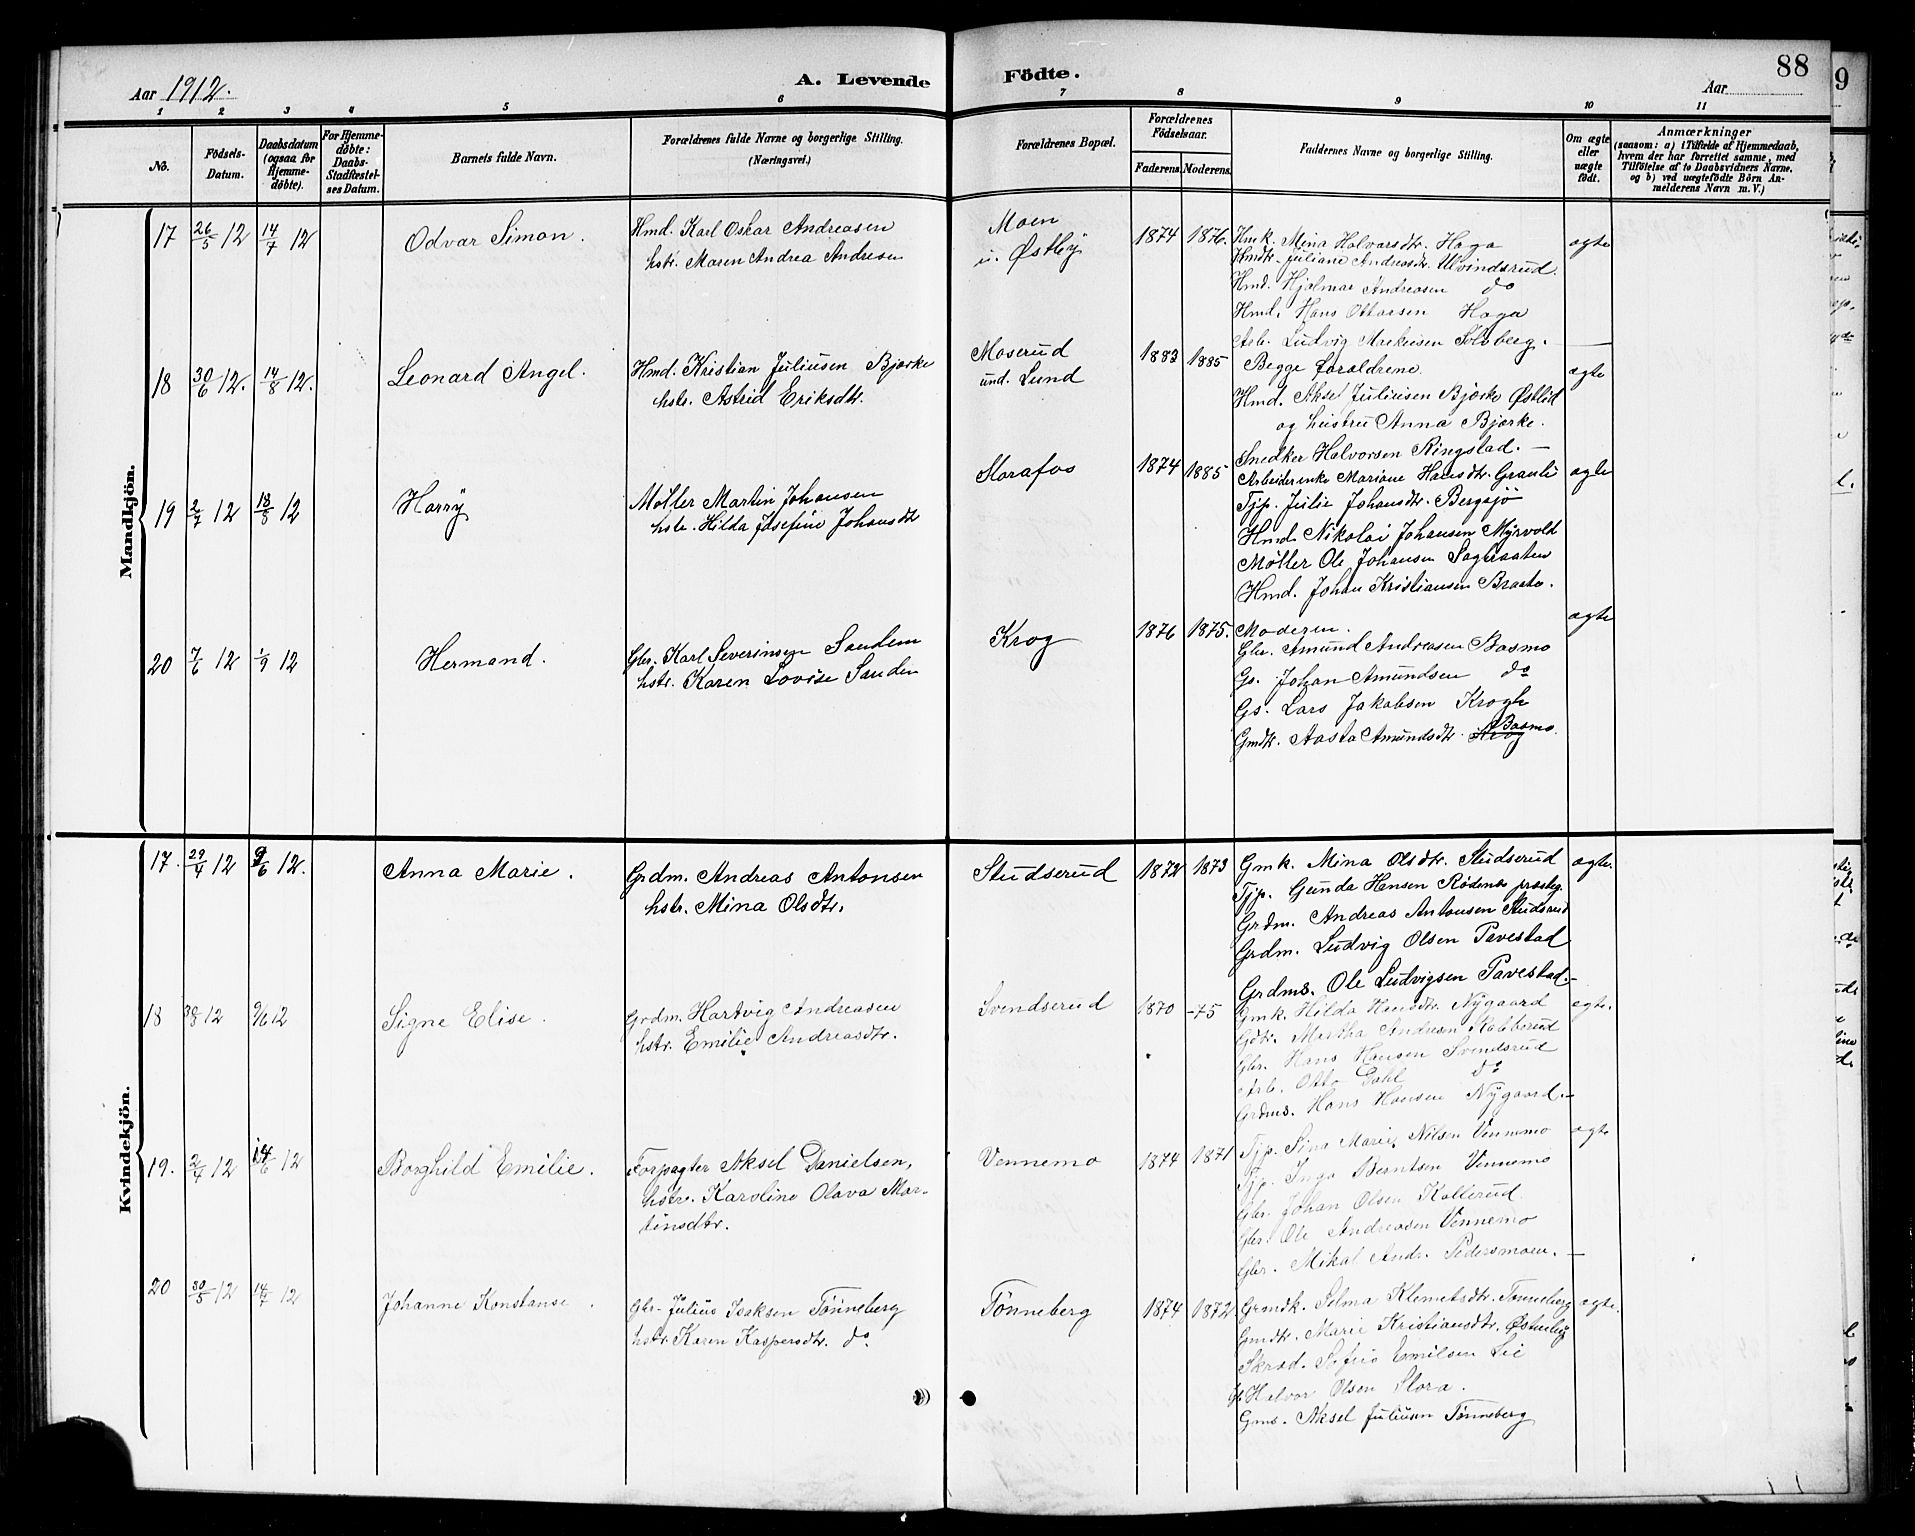 88
9
Aar 1912.
A. Levende Födte.
Aar
1 2 3 4 5 6 7 8 9 10 11
No.
Födsels-Datum.
Daabsdatum (ogsaa for Hjemme-döbte).
For Hjemme-döbte: Daabs-Stadfæstel-ses Datum.
Barnets fulde Navn.
Forældrenes fulde Navne og borgerlige Stilling.
(Næringsvei.)
Forældrenes Bopæl.
Forældrenes Födselsaar.
Faderens. Moderens.
Faddernes Navne og borgerlige Stilling.
Om ægte eller uægte födt.
Anmærkninger
(saasom: a) i Tilfælde af Hjemmedaab, hvem der har forrettet samme, med Tilföielse af to Daabsvidners Navne, og b) ved uægtefödte Börn An-melderens Navn m. V.)
Mandkjön.
17 26/5 12 14/7 12 Odvar Simon.
Hmd. Karl Oskar Andreasen
hstr. Maren Andrea Andresen
Moen
u. Østby
1874 1876.
Hmk. Mina Halvorsdtr. Haga
Hmdtr. Juliane Andreasdtr. Ulvindsrud
Hmd. Hjalmar Andreasen do
Hmd. Hans Ottarsen Haga
Arb. Ludvig Markusen Solsberg.
ægte
18 30/6 12. 14/8 12. Leonard Angel.
Hmd. Kristian Juliusen Bjørke
hstr. Astrid Eriksdtr.
Moserud
und. Lund
1883 1885
Begge forældrene.
Hmd. Aksel Juliusen Bjørke Østlid
og hustru Anna Bjørke.
Snedker Halvorsen Ringstad.
ægte
19 2/7 12 18/8 12 Harry
Møller Martin Johansen
hstr. Hilda Josefine Johansdtr
Storafos
1874 1885
Arbeiderenke Mariane Hansdtr. Granli
Tjp. Julie Johansdtr. Bergsjø
Hmd. Nikolai Johansen Myrvold
Møller Ole Johansen Sagbraaten
Hmd. Johan Kristiansen Braate.
ægte
20 7/6 12 1/9 12 Hermand.
Gbr. Karl Severinsen Sanden
hstr. Karen Lovise Sanden
Krog
1876 1875.
Moderen.
Gbr. Amund Andreasen Basmo
Gs. Johan Amundsen do
Gs. Lars Jakobsen Krogh
Gmdtr. Aasta Amundsdtr. Krog Basmo.
ægte
Kvindekjön.
17. 29/4 12 9/6 12. Anna Marie.
Grdm. Andreas Antonsen
hstr. Mina Olsdtr.
Studserud
1872 1873
Gmk. Mina Olsdtr. Studserud
Tjp. Gunda Hansen Rødenes præsteg.
Grdm. Andreas Antonsen Studsrud
Grdm. Ludvig Olsen Pavestad
Grdms. Ole Ludvigsen Pavestad.
ægte.
18 12 9/6 12 Signe Elise.
Grdm. Hartvig Andreasen
hstr. Emilie Andreasdtr.
Svendserud
1870 -75
Gmk. Hilda Nygaard
Gdtr. Martha Andrean Kabberud
Gbr. Hans Hansen Svendsrud
Arb. Otto Dahl do
Grdms. Hans Hansen Nygaard.
ægte.
19. 2/4 12 14/6 12 Borghild Emilie.
Forpagter Aksel Danielsen,
hstr. Karoline Olava Mar-
tinsdtr.
Vennemo
1874 1871
Tjp. Sina Marie Nilsen Vennemo
Tjp. Inga Berntsen Vennemo
Gbr. Johan Olsen Kallerud
Gbr. Ole Andreasen Vennemo
Gbr. Mikal Andr. Pedersmoen.
ægte
20 30/5 12 14/7 12 Johanne Konstanse.
Gbr. Julius Isaksen Tønneberg
hstr. Karen Kaspersdtr. do.
Tønneberg
1874 1872
Grmdk. Selma Klemetsdtr. Tønneberg
Gmdtr. Marie Kristiansdtr. Østenby
Skræd. Emilsen Lie
Halvor Olsen Slora.
Gms. Aksel Juliusen Tønneberg
ægte.